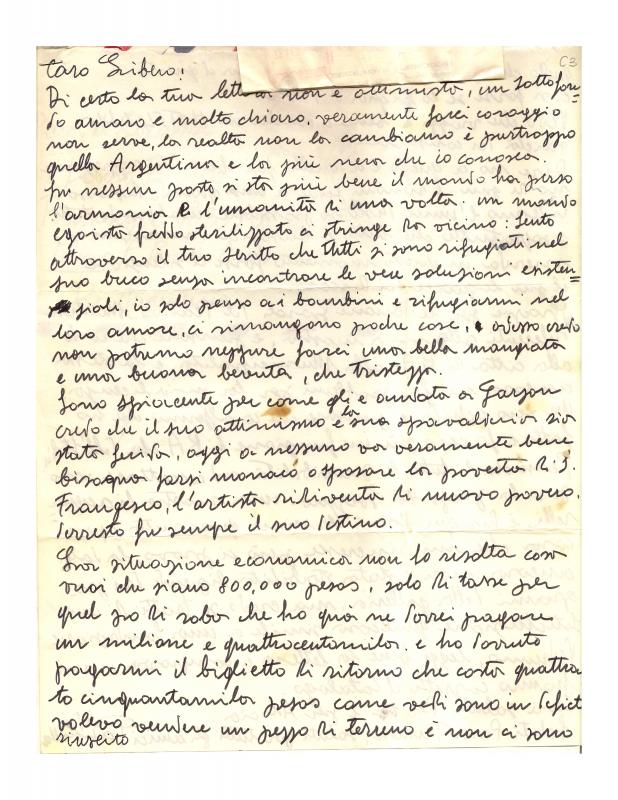 Caro Libero!
C3
Di certo la tua lettera non è ottimista, un sottofon=
do amaro e molto chiaro, veramente farsi coraggio
non serve, la realtà non la cambiamo è purtroppo
quella Argentina e la più nera che io conosca.
In nessun posto si sta più bene il mondo ha perso
l'armonia e l'umanità di una volta. un mondo
egoista freddo sterilizzato ci stringe da vicino: Sento
attraverso il tuo scritto che tutti si sono rifugiati nel
suo buco senza incontrare le vere soluzioni esisten=
ziali, io solo penso ai bambini e rifugiarmi nel
loro amore, ci rimangono poche cose, adesso credo
non potremo neppure farci una bella mangiata
e una buona bevuta, che tristezza.
Sono spiacente per come gli e andata a Garzon
credo che il suo ottimismo e la sua spavalderia sia
stata ferita, oggi a nessuno va veramente bene
bisogna farsi monaco o sposare la povertà di S.
Francesco, l'artista ridiventa di nuovo povero.
Questo fu sempre il suo destino.
La situazione economica non la risolta cosa
vuoi che siano 800,000 pesos, solo di tasse per
quel po di roba che ho quà ne dovrei pagare
un milione e quattrocentomila. e ho dovuto
pagarmi il biglietto di ritorno che costa quattro
to cinquantamila pesos come vedi sono in deficit
volevo vendere un pezzo di terreno è non ci sono
riuscito